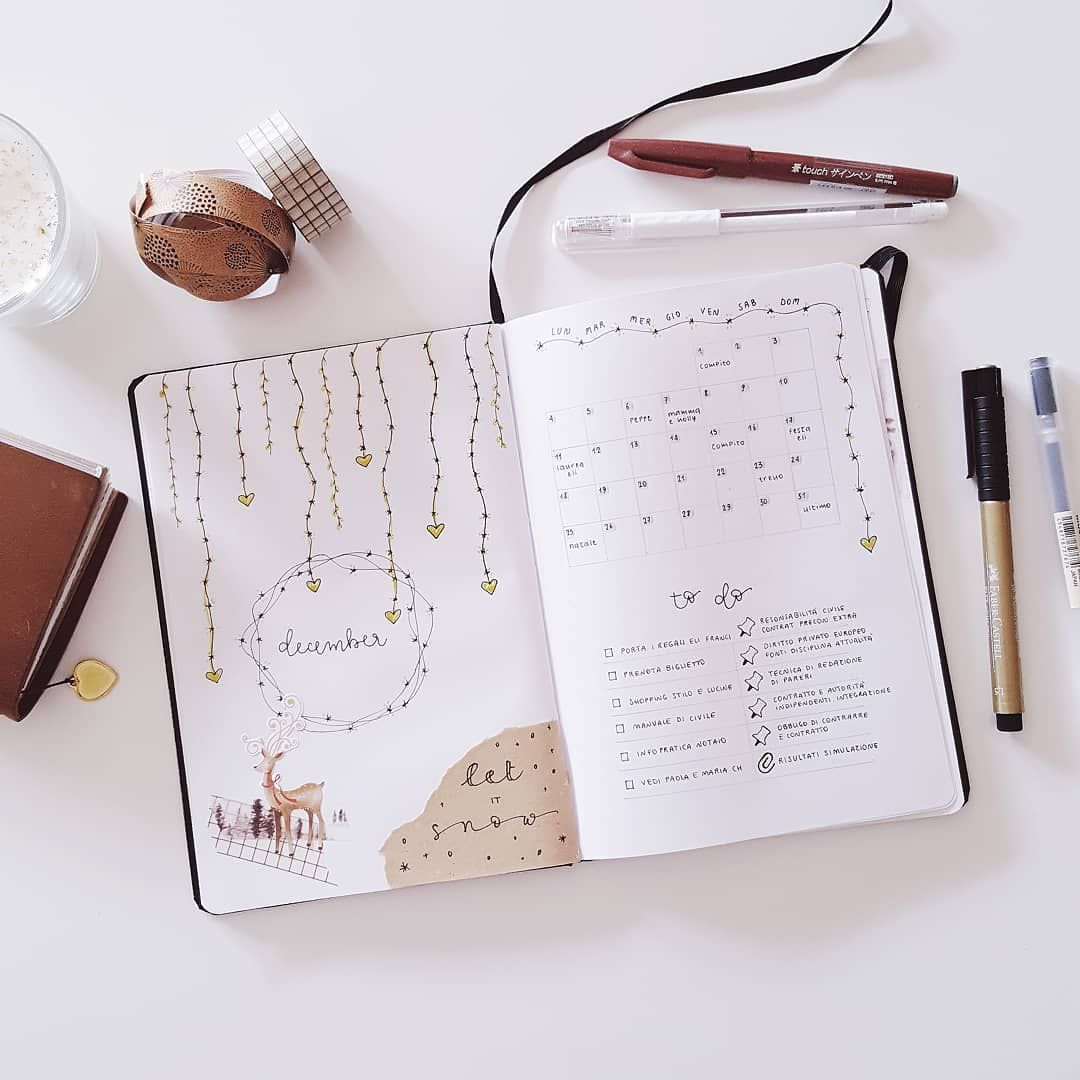 touch サインペン
december
let
IT
snow
LUN MAR MER GIO VEN SAB DOM
1 2 3
compito
4 5 6 7 8 9 10
PEPPE mamma
e holly
11 12 13 14 15 16 17
laurea compito festa
eli eli
18 19 20 21 22 23 24
treno
25 26 27 28 29 30 31
natale ultimo
to do
PORTA I REGALI ELI FRANCI
PRENOTA BIGLIETTO
SHOPPING STILO E LUCINE
MANUALE DI CIVILE
INFO PRATICA NOTAIO
VEDI PAOLA E MARIA CH
RESONSABILITÀ CIVILE
CONTRAT PRECON EXTRA
DIRITTO PRIVATO EUROPEO
FONTI DISCIPLINA ATTUALITÀ
TECNICA DI REDAZIONE
DI PARERI
CONTRATTO E AUTORITÀ
INDIPENDENTI. INTEGRAZIONE
OBBLIGO DI CONTRARRE
E CONTRATTO
RISULTATI SIMULAZIONE
FABER-CASTELL
1,5
JAPAN